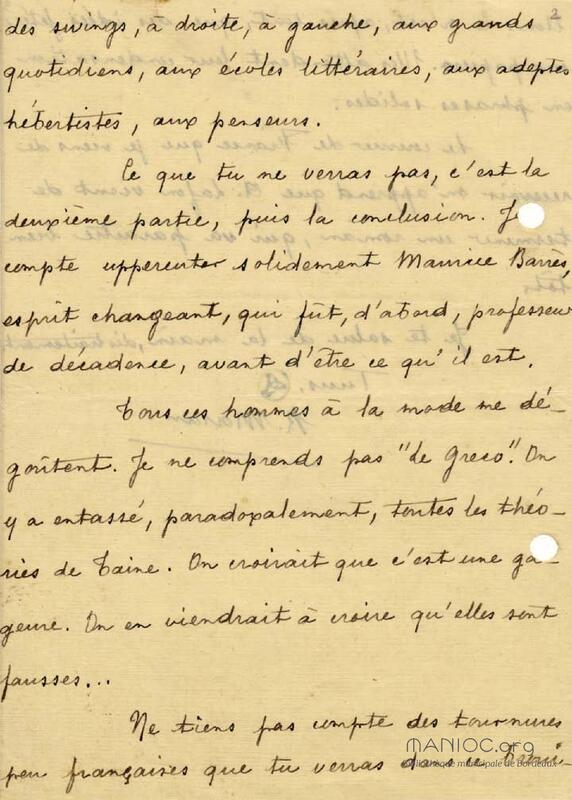 2
des swings, à droite, à gauche, aux grands
quotidiens, aux écoles littéraires, aux adeptes
hébertistes, aux penseurs.
Ce que tu ne verras pas, c'est la
deuxième partie, puis la conclusion. Je
compte uppercuter solidement Maurice Barrès,
esprit changeant, qui fût, d'abord, professeur
de décadence, avant d'être ce qu'il est.
Tous ces hommes à la mode me dé-
goûtent. Je ne comprends pas "le Greco". On
y a entassé, paradoxalement, toutes les théo-
ries de Taine. On croirait que c'est une ga-
geure. On en viendrait à croire qu'elles sont
fausses...
Ne tiens pas compte des tournures
peu françaises que tu verras dans ce
MANIOC.org
Bibliothèque municipale de Bordeaux